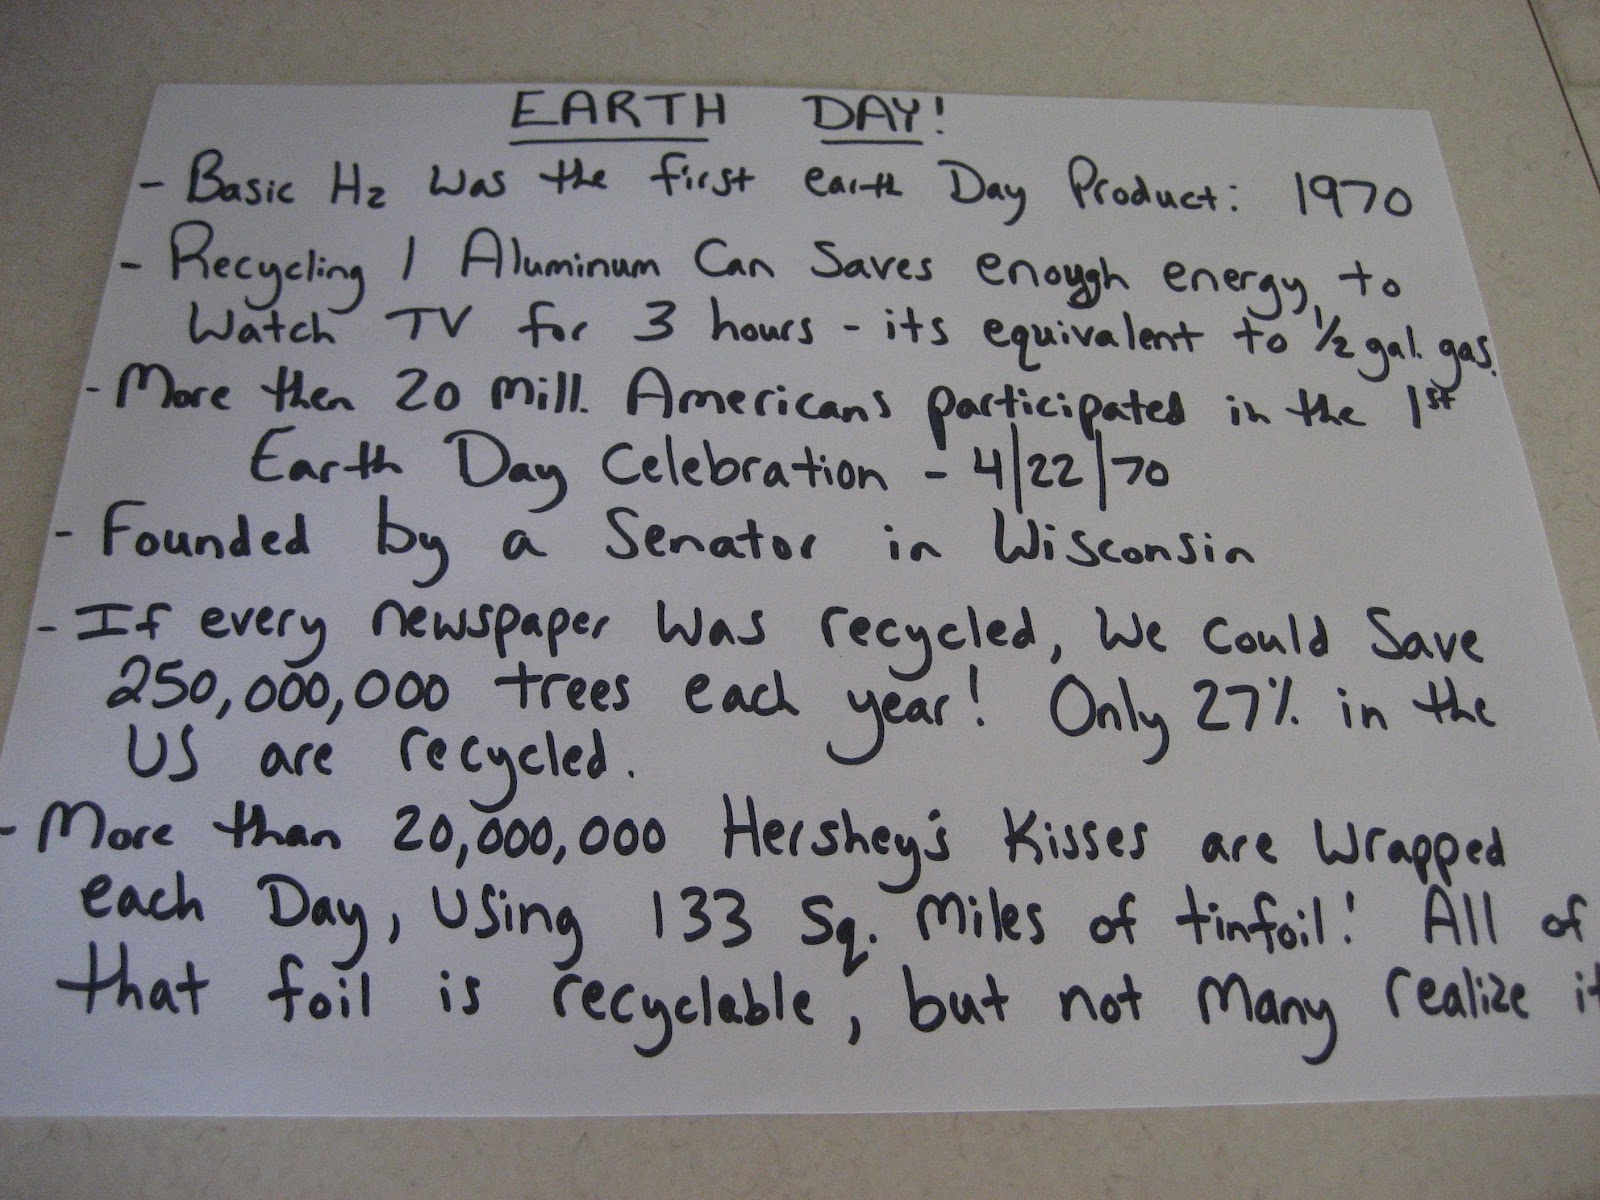 EARTH DAY!
- Basic H2 was the first earth Day Product: 1970
- Recycling 1 Aluminum Can Saves enough energy to
Watch TV for 3 hours - its equivalent to 1/2 gal. gas.
- More then 20 mill. Americans participated in the 1st
Earth Day Celebration - 4/22/70
- Founded by a Senator in Wisconsin
- If every newspaper was recycled, we could save
250,000,000 trees each year! Only 27% in the
US are recycled.
- More than 20,000,000 Hershey's Kisses are wrapped
each Day, using 133 sq. miles of tinfoil! All of
that foil is recyclable, but not many realize it